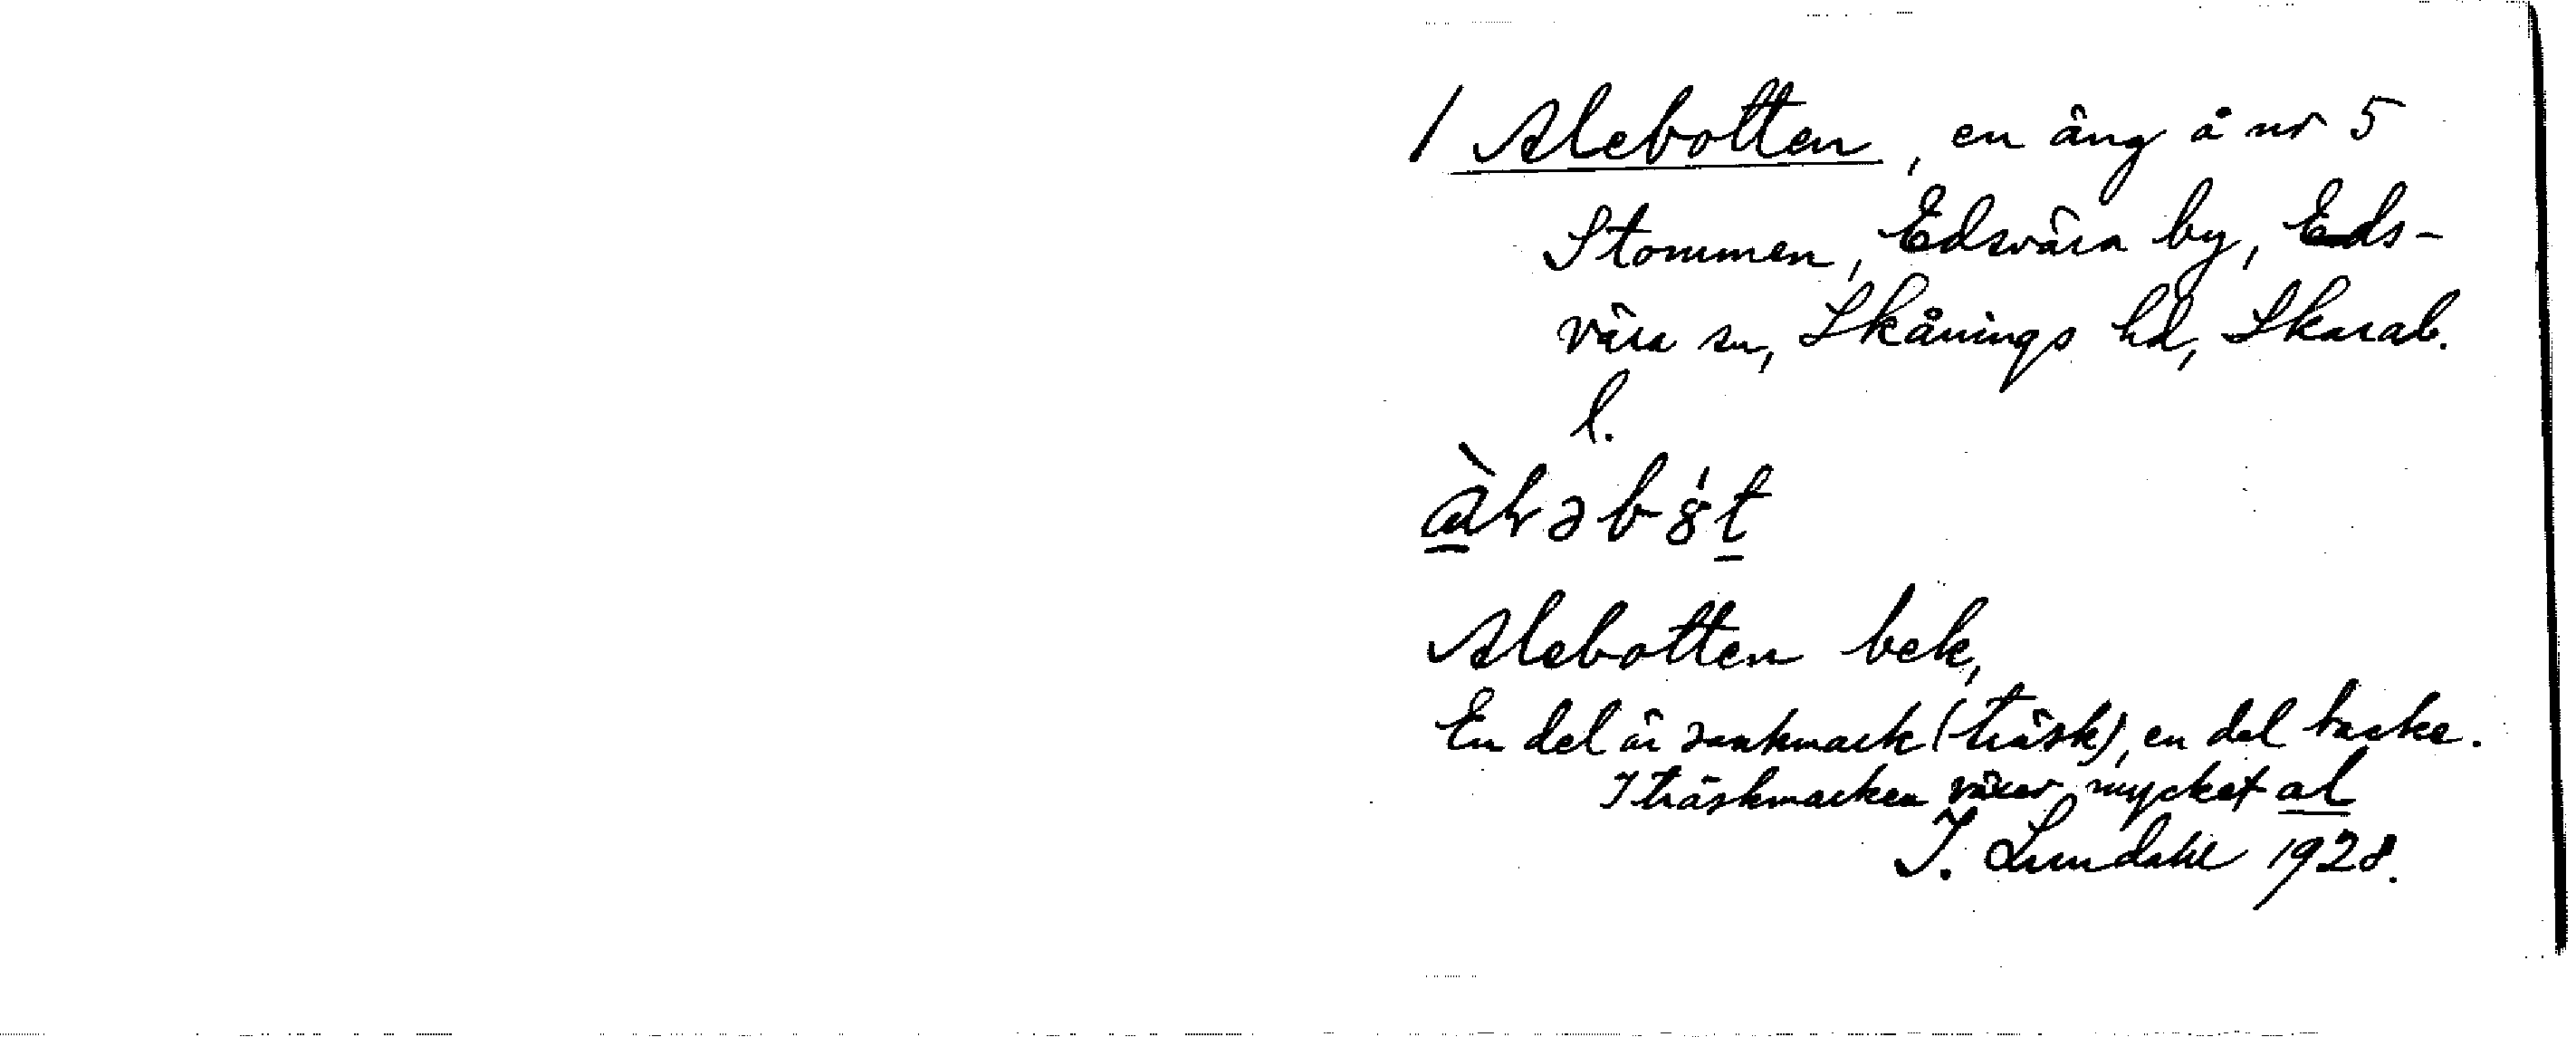 / Alebotten, en äng å nr 5
Stommen, Edsvära by, Eds-
vära sn, Skånings hd, Skarab.
l.
Alebotten bek,
En del är sankmark (träsk), en del backe.
I träskmarken växer mycket al
I. Lundahl 1928.